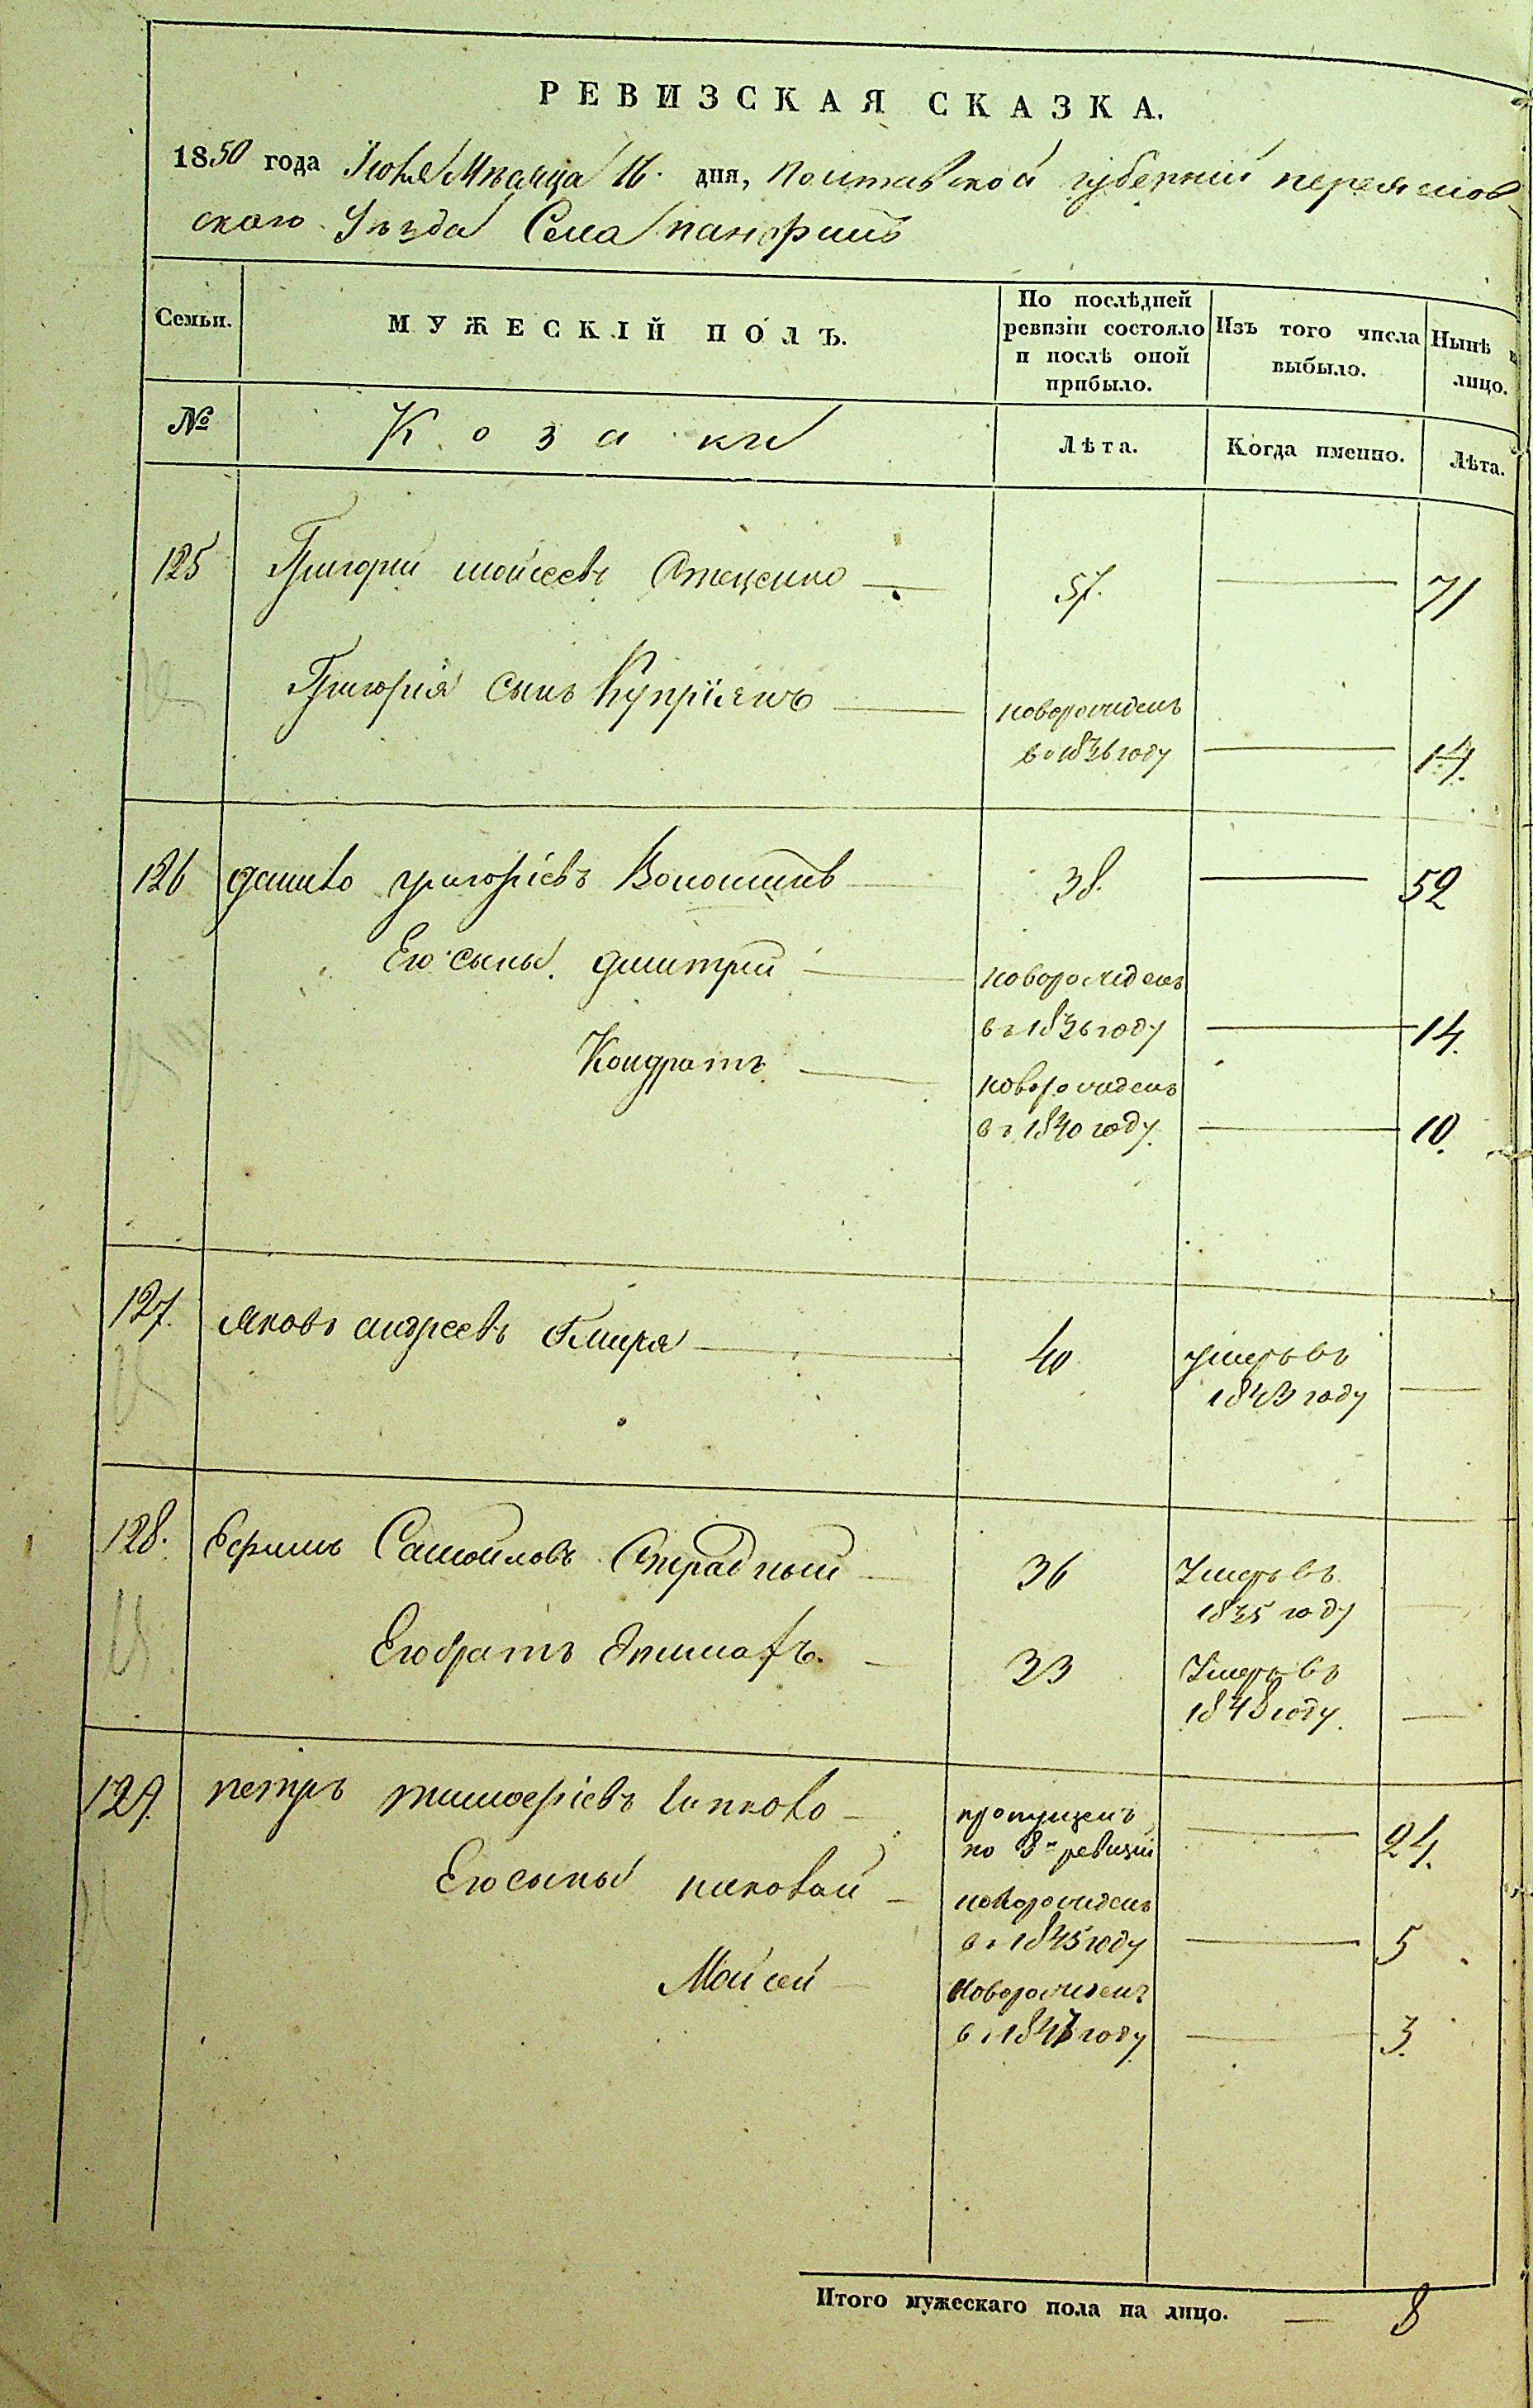 РЕВИЗСКАЯ СКАЗКА.
1850 года Июня Мѣсяца 16. дня, Полтавской губерніи переяслов
скаго Уѣзда Села панфилъ
Семьи.
МУЖЕСКІЙ ПОЛЪ.
По послѣдней
ревизіи состояло
и послѣ оной
прибыло.
Изъ того числа
выбыло.
Нынѣ
лицо.
№
Козаки
Лѣта.
Когда именно.
Лѣта.
125 Григорій мойсеевъ Стеценко 57. 71
Григорія сынъ Купріянъ новорожденъ
въ 1836 году 14.
126 данило григоріевъ Волошинъ 38. 52
Его сыны дмитрій новорожденъ
въ 1836 году 14.
Кондратъ новорожденъ
въ 1840 году. 10.
127. яковъ андреевъ 40 умеръ въ
году
128. Ефимъ Самойловъ Отрадный 36 Умеръ въ
1835 году
Его братъ 33 Умеръ въ
1848 году.
129. петръ тимофеіевъ пропущенъ
по 8й ревизіи 24.
Его сыны новорожденъ
въ 1845 году 5
Мойсей Новорожденъ
въ 1847 году 3.
Итого мужескаго пола на лицо. — 8